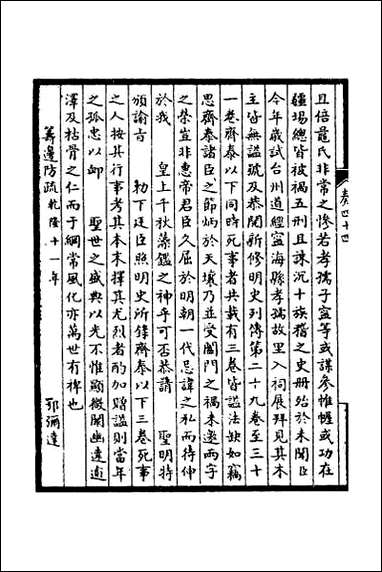 且倍黿氏非常之慘若孝孺子寧等或謀參帷幄或功在
疆埸總皆被禍五刑且誅沉十族稽之史冊殆於未聞臣
今年歲試台州道經寧海縣孝孺故里入祠展拜見其木
主皆無諡號及恭閱新修明史列傳第二十九卷至三十
一卷齊泰以下同時死事者共載有三卷皆諡法缺如竊
思齊泰諸臣之節炳於天壤乃並受闔門之禍未邀兩字
之榮豈非惠帝君臣久屈於明朝一代忌諱之私而待伸
於我 皇上千秋藻鑑之神乎可否恭請 聖明特
頒諭旨 勅下廷臣照明史所錄齊泰以下三卷死事
之人按其行事考其本末擇其尤烈者酌加贈諡則當年
之孤忠以卹 聖世之盛典以光不惟顯微闡幽遠逾
澤及枯骨之仁而于綱常風化亦萬世有裨也
籌邊防疏乾隆十一年 鄂彌達
奏四十四